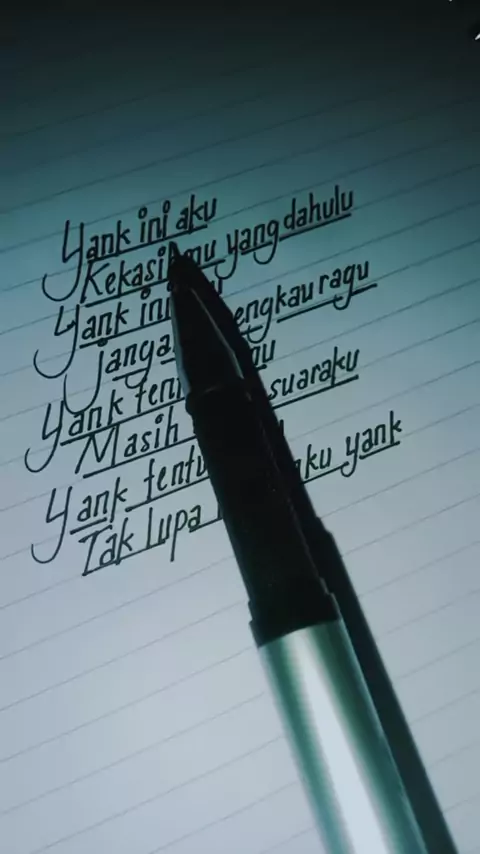 Yank ini aku
Kekasihmu yang dahulu
Yank ini engkau ragu
Janga
Yank tent suaraku
Masih
Yank tentu ku yank
Tak lupa